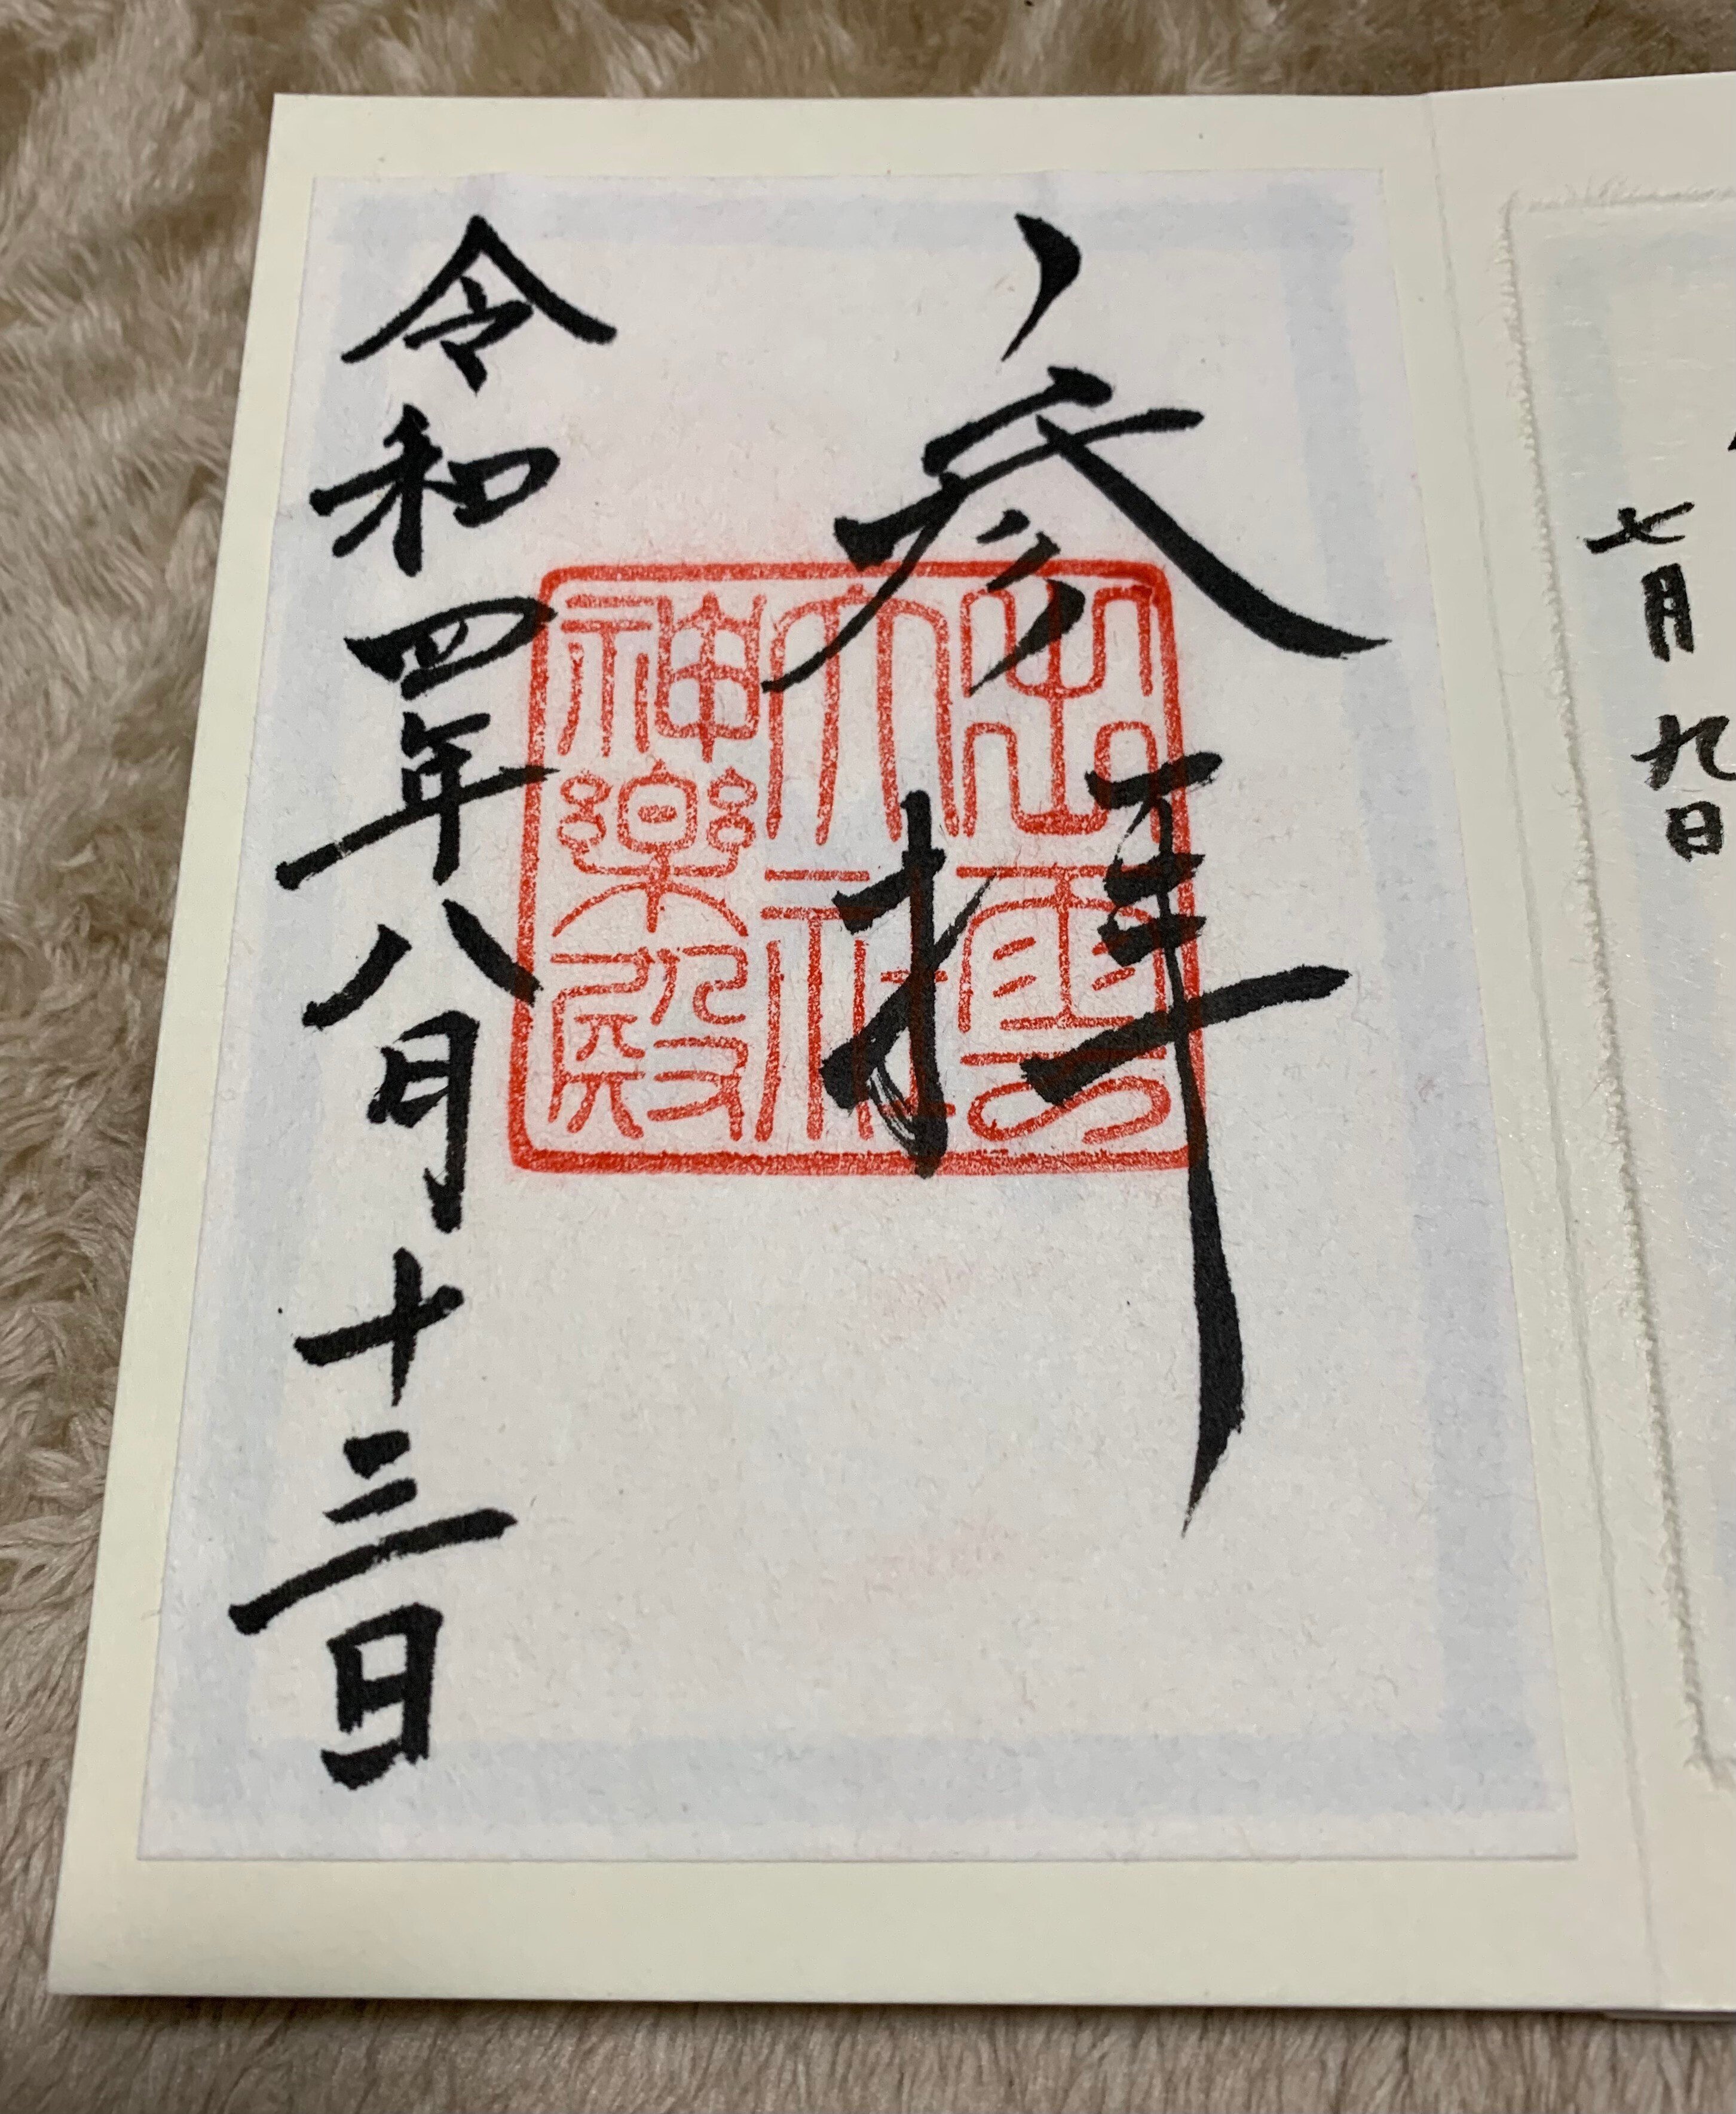 七月九日
参拝
出雲
大社
神楽殿
令和四年八月十三日